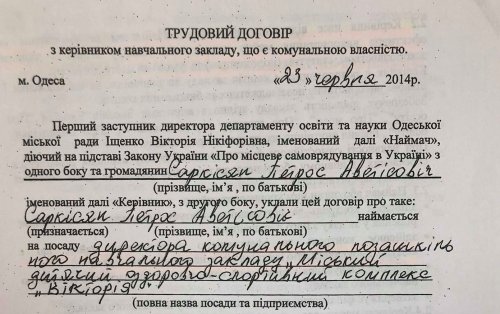 ТРУДОВИЙ ДОГОВІР
з керівником навчального закладу, що є комунальною власністю.
м. Одеса «23» червня 2014р.
Перший заступник директора департаменту освіти та науки Одеської
міської ради Іщенко Вікторія Нікіфорівна, іменований далі «Наймач»,
діючий на підставі Закону України «Про місцеве самоврядування в Україні» з
одного боку та громадянин Саркісян Петрос Аветісович
(прізвище, ім’я , по батькові)
іменований далі «Керівник», з другого боку, уклали цей договір про таке:
Саркісян Петрос Аветісович наймається
(призначається) (прізвище, ім’я , по батькові)
на посаду директора комунального позашкіль
ного навчального закладу „Міський
дитячий оздоровчо-спортивний комплекс
„Вікторія"
(повна назва посади та підприємства)